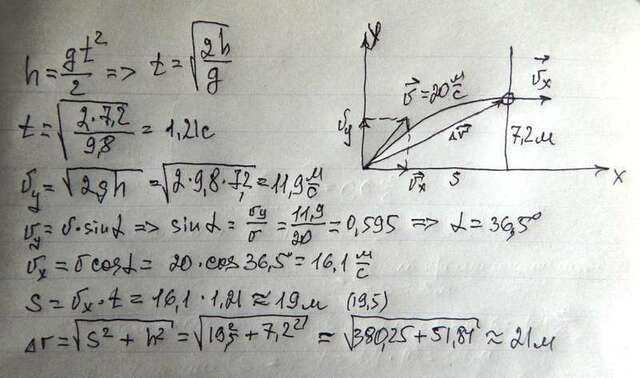 h = gt²/2 => t = √(2h/g)
t = √(2·7,2/9,8) = 1,21с
υy = √(2gh) = √(2·9,8·7,2) = 11,9 м/с
υy = υ·sinα => sinα = υy/υ = 11,9/20 = 0,595 => α = 36,5°
υx = υcosα = 20·cos36,5° = 16,1 м/с
S = υx·t = 16,1·1,21 ≈ 19м (19,5)
Δr = √(S² + h²) = √(19,5² + 7,2²) = √(380,25 + 51,84) ≈ 21м
y
υ⃗ = 20 м/с
υ⃗x
υy
Δr⃗
7,2м
υ⃗x
S
x